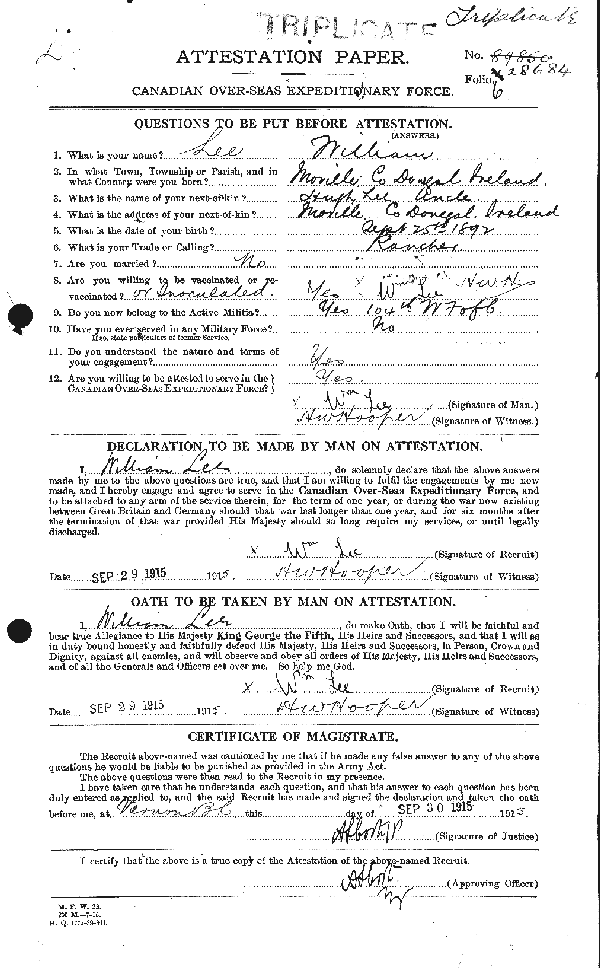 TRIPLICATE
Triplicate
ATTESTATION PAPER.
No. 89850
28684
Folio. 6
CANADIAN OVER-SEAS EXPEDITIONARY FORCE.
QUESTIONS TO BE PUT BEFORE ATTESTATION.
(ANSWERS.)
1. What is your name? Lee William
2. In what Town, Township or Parish, and in
what Country were you born? Moville Co Donegal Ireland
3. What is the name of your next-of-kin? Hugh Lee Uncle
4. What is the address of your next-of-kin? Moville Co Donegal Ireland
5. What is the date of your birth? Sept 25th 1892
6. What is your Trade or Calling? Rancher
7. Are you married? No
8. Are you willing to be vaccinated or re-
vaccinated? or Inoculated. Yes x Wm Lee
9. Do you now belong to the Active Militia? Yes 104th
10. Have you ever served in any Military Force? No
If so, state particulars of former Service.
11. Do you understand the nature and terms of
your engagement? Yes
12. Are you willing to be attested to serve in the
CANADIAN OVER-SEAS EXPEDITIONARY FORCE? Yes.
x Wm Lee (Signature of Man.)
HW Hooper (Signature of Witness.)
DECLARATION TO BE MADE BY MAN ON ATTESTATION.
I, William Lee, do solemnly declare that the above answers
made by me to the above questions are true, and that I am willing to fulfil the engagements by me now
made, and I hereby engage and agree to serve in the Canadian Over-Seas Expeditionary Force, and
to be attached to any arm of the service therein, for the term of one year, or during the war now existing
between Great Britain and Germany should that war last longer than one year, and for six months after
the termination of that war provided His Majesty should so long require my services, or until legally
discharged.
x Wm Lee (Signature of Recruit)
Date SEP 29 1915 1915 HW Hooper (Signature of Witness)
OATH TO BE TAKEN BY MAN ON ATTESTATION.
I, William Lee, do make Oath, that I will be faithful and
bear true Allegiance to His Majesty King George the Fifth, His Heirs and Successors, and that I will as
in duty bound honestly and faithfully defend His Majesty, His Heirs and Successors, in Person, Crown and
Dignity, against all enemies, and will observe and obey all orders of His Majesty, His Heirs and Successors,
and of all the Generals and Officers set over me. So help me God.
x Wm Lee (Signature of Recruit)
Date SEP 29 1915 1915 HW Hooper (Signature of Witness)
CERTIFICATE OF MAGISTRATE.
The Recruit above-named was cautioned by me that if he made any false answer to any of the above
questions he would be liable to be punished as provided in the Army Act.
The above questions were then read to the Recruit in my presence.
I have taken care that he understands each question, and that his answer to each question has been
duly entered as replied to, and the said Recruit has made and signed the declaration and taken the oath
before me, at Vernon B.C. this day of SEP 30 1915 1915
(Signature of Justice)
I certify that the above is a true copy of the Attestation of the above-named Recruit.
(Approving Officer)
M. F. W. 23.